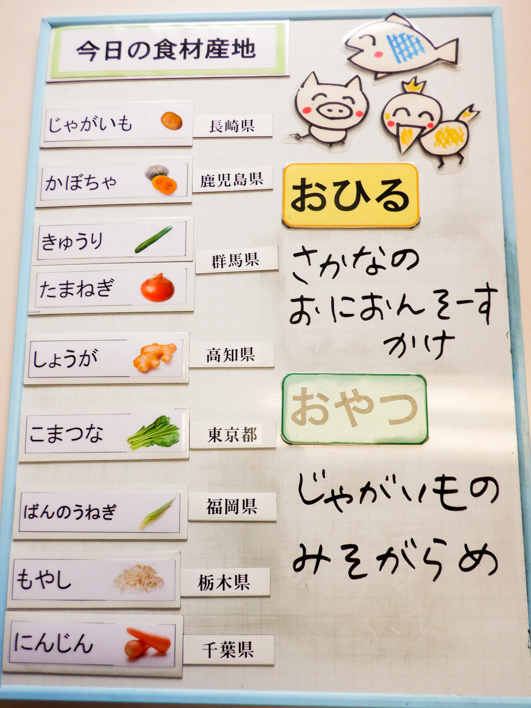 今日の食材産地
じゃがいも 長崎県
かぼちゃ 鹿児島県
きゅうり
群馬県
たまねぎ
しょうが 高知県
こまつな 東京都
ばんのうねぎ 福岡県
もやし 栃木県
にんじん 千葉県
おひる
さかなの
おにおんそーす
かけ
おやつ
じゃがいもの
みそがらめ